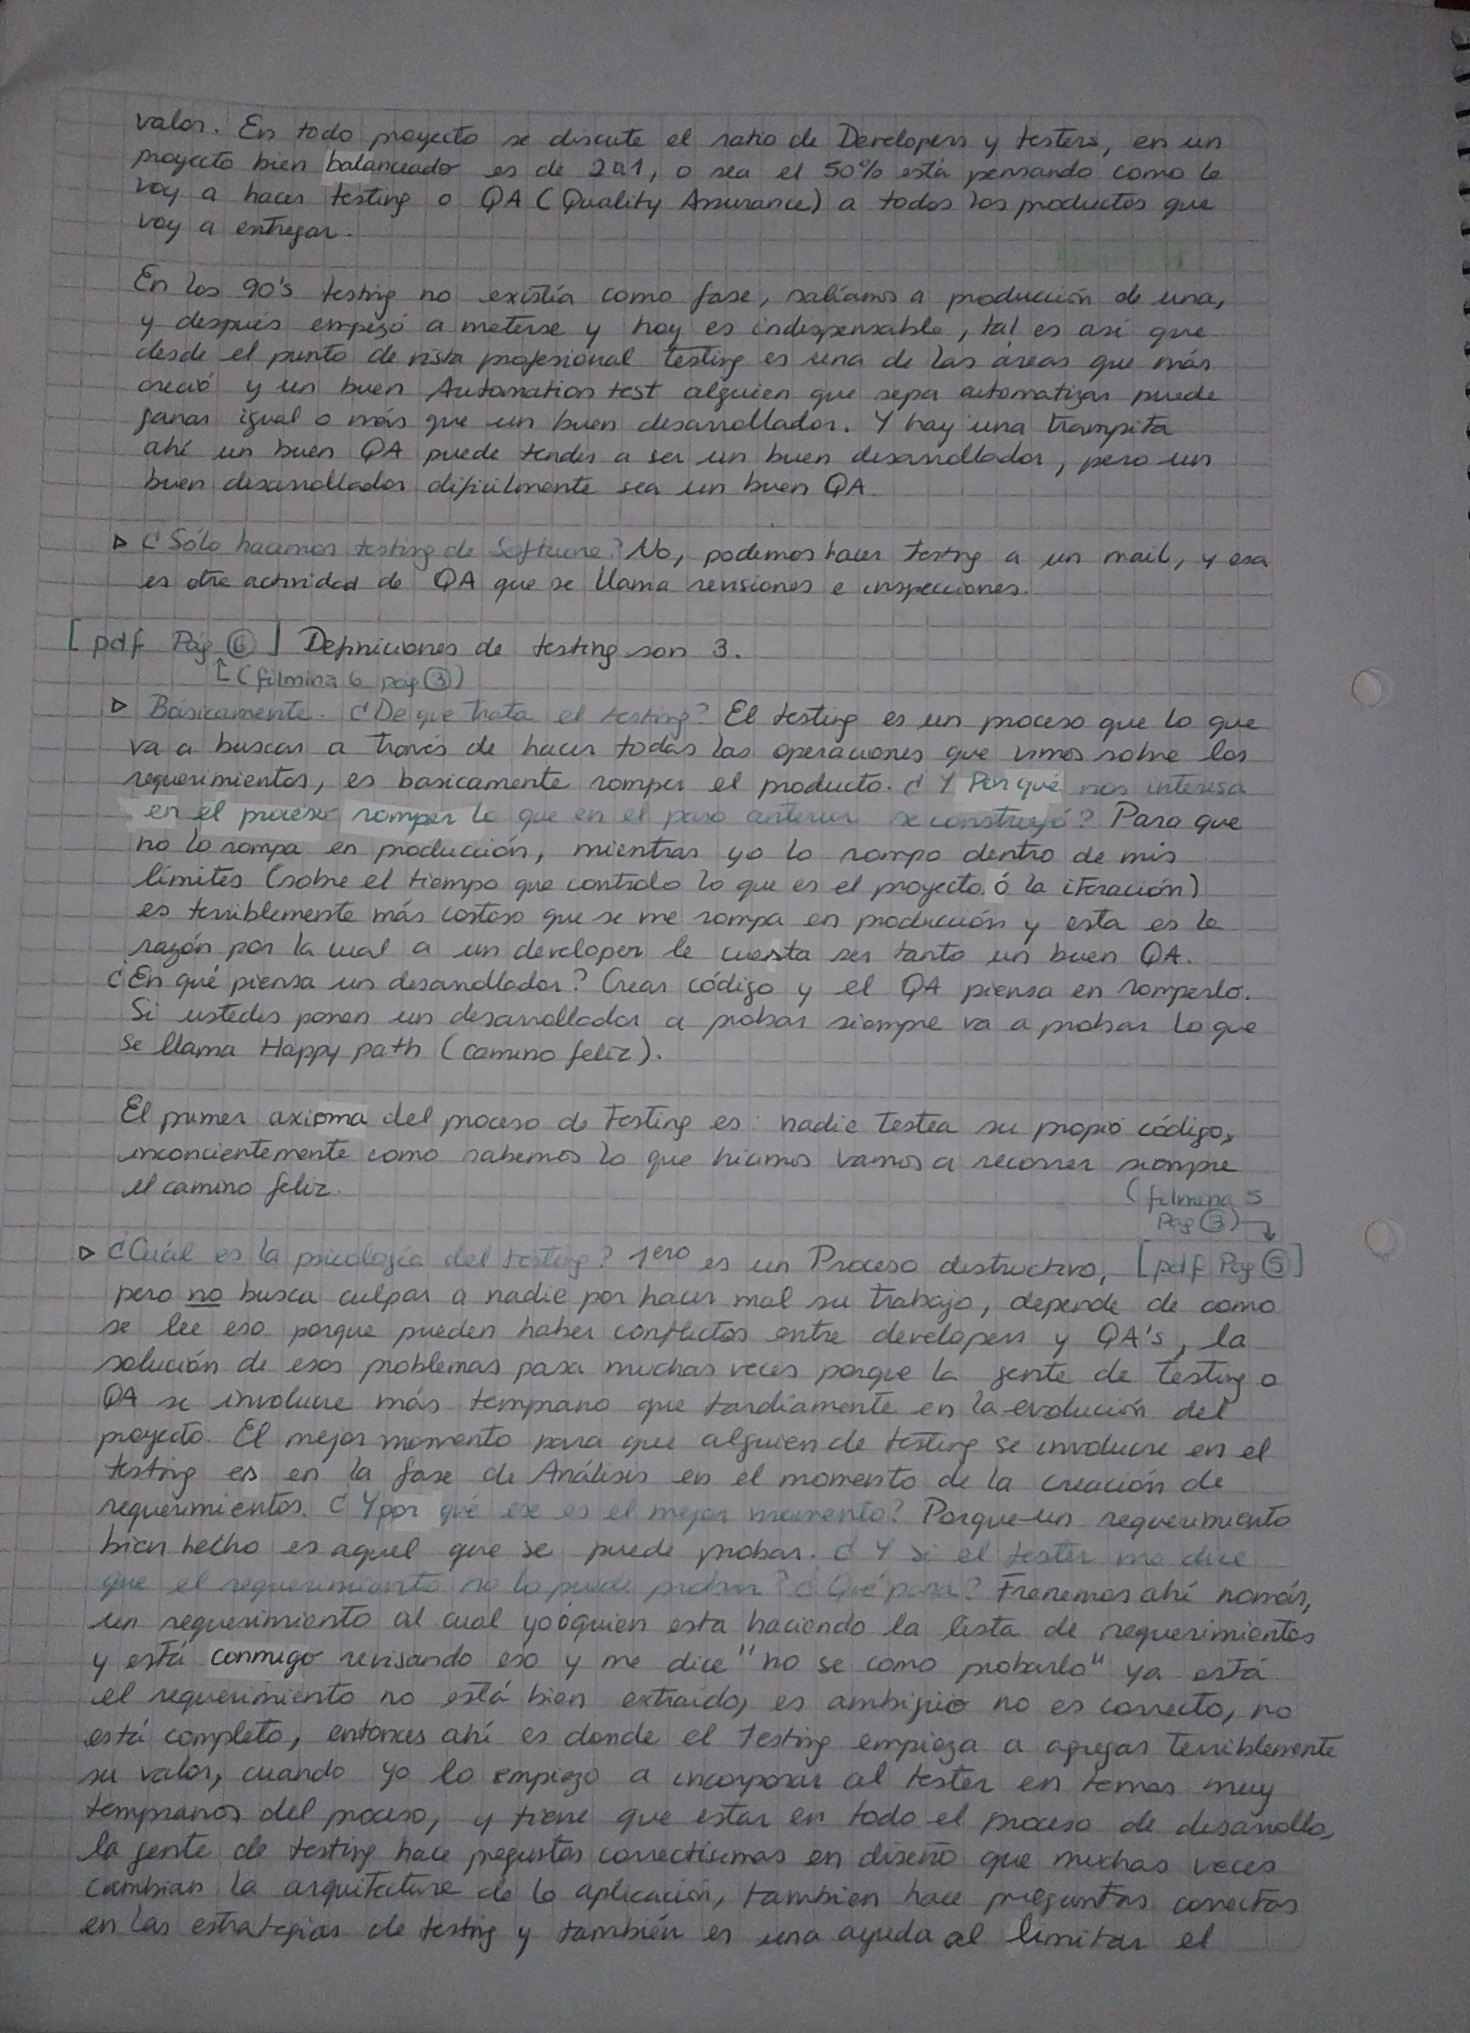 valor. En todo proyecto se discute el ratio de Developers y testers, en un
proyecto bien balanceado es de 2a1, o sea el 50% está pensando como le
voy a hacer testing o QA (Quality Assurance) a todos los productos que
voy a entregar.
En los 90's testing no existía como fase, salíamos a producción de una,
y después empezó a meterse y hoy es indispensable, tal es así que
desde el punto de vista profesional testing es una de las áreas que más
creció y un buen Automation test alguien que sepa automatizar puede
ganar igual o más que un buen desarrollador. Y hay una trampita
ahí un buen QA puede tender a ser un buen desarrollador, pero un
buen desarrollador dificilmente sea un buen QA.
▷ ¿Sólo hacemos testing de Software? No, podemos hacer testing a un mail, y esa
es otra actividad de QA que se llama revisiones e inspecciones.
[pdf Pág ⑥] Definiciones de testing son 3.
↑(filmina 6 pág ③)
▷ Básicamente. ¿De que trata el testing? El testing es un proceso que lo que
va a buscar a través de hacer todas las operaciones que vimos sobre los
requerimientos, es basicamente romper el producto. ¿Y Por qué nos interesa
en el proceso romper lo que en el paso anterior se construyó? Para que
no lo rompa en producción, mientras yo lo rompo dentro de mis
límites (sobre el tiempo que controlo lo que es el proyecto ó la iteración)
es terriblemente más costoso que se me rompa en producción y esta es la
razón por la cual a un developer le cuesta ser tanto un buen QA.
¿En qué piensa un desarrollador? Crear código y el QA piensa en romperlo.
Si ustedes ponen un desarrollador a probar siempre va a probar lo que
se llama Happy path (camino feliz).
El primer axioma del proceso de Testing es: nadie testea su propio código,
inconcientemente como sabemos lo que hicimos vamos a recorrer siempre
el camino feliz.
(filmina 5
Pag ③)
▷ ¿Cuál es la psicología del testing? 1ero es un Proceso destructivo, [pdf Pag ⑤]
pero no busca culpar a nadie por hacer mal su trabajo, depende de como
se lee eso porque pueden haber conflictos entre developers y QA's, la
solución de esos problemas pasa muchas veces porque la gente de testing o
QA se involucre más temprano que tardíamente en la evolución del
proyecto. El mejor momento para que alguien de testing se involucre en el
testing es en la fase de Análisis en el momento de la creación de
requerimientos. ¿Y por qué ese es el mejor momento? Porque un requerimiento
bien hecho es aquel que se puede probar. ¿Y si el tester me dice
que el requerimiento no lo puede probar? ¿Qué pasa? Frenemos ahí nomás,
un requerimiento al cual yo ó quien esta haciendo la lista de requerimientos
y está conmigo revisando eso y me dice "no se como probarlo" ya está
el requerimiento no está bien extraído, es ambiguo no es correcto, no
está completo, entonces ahí es donde el Testing empieza a agregar terriblemente
su valor, cuando yo lo empiezo a incorporar al tester en temas muy
tempranos del proceso, y tiene que estar en todo el proceso de desarrollo,
la gente de testing hace preguntas correctísimas en diseño que muchas veces
cambian la arquitectura de la aplicación, tambien hace preguntas correctas
en las estrategias de testing y también es una ayuda al limitar el